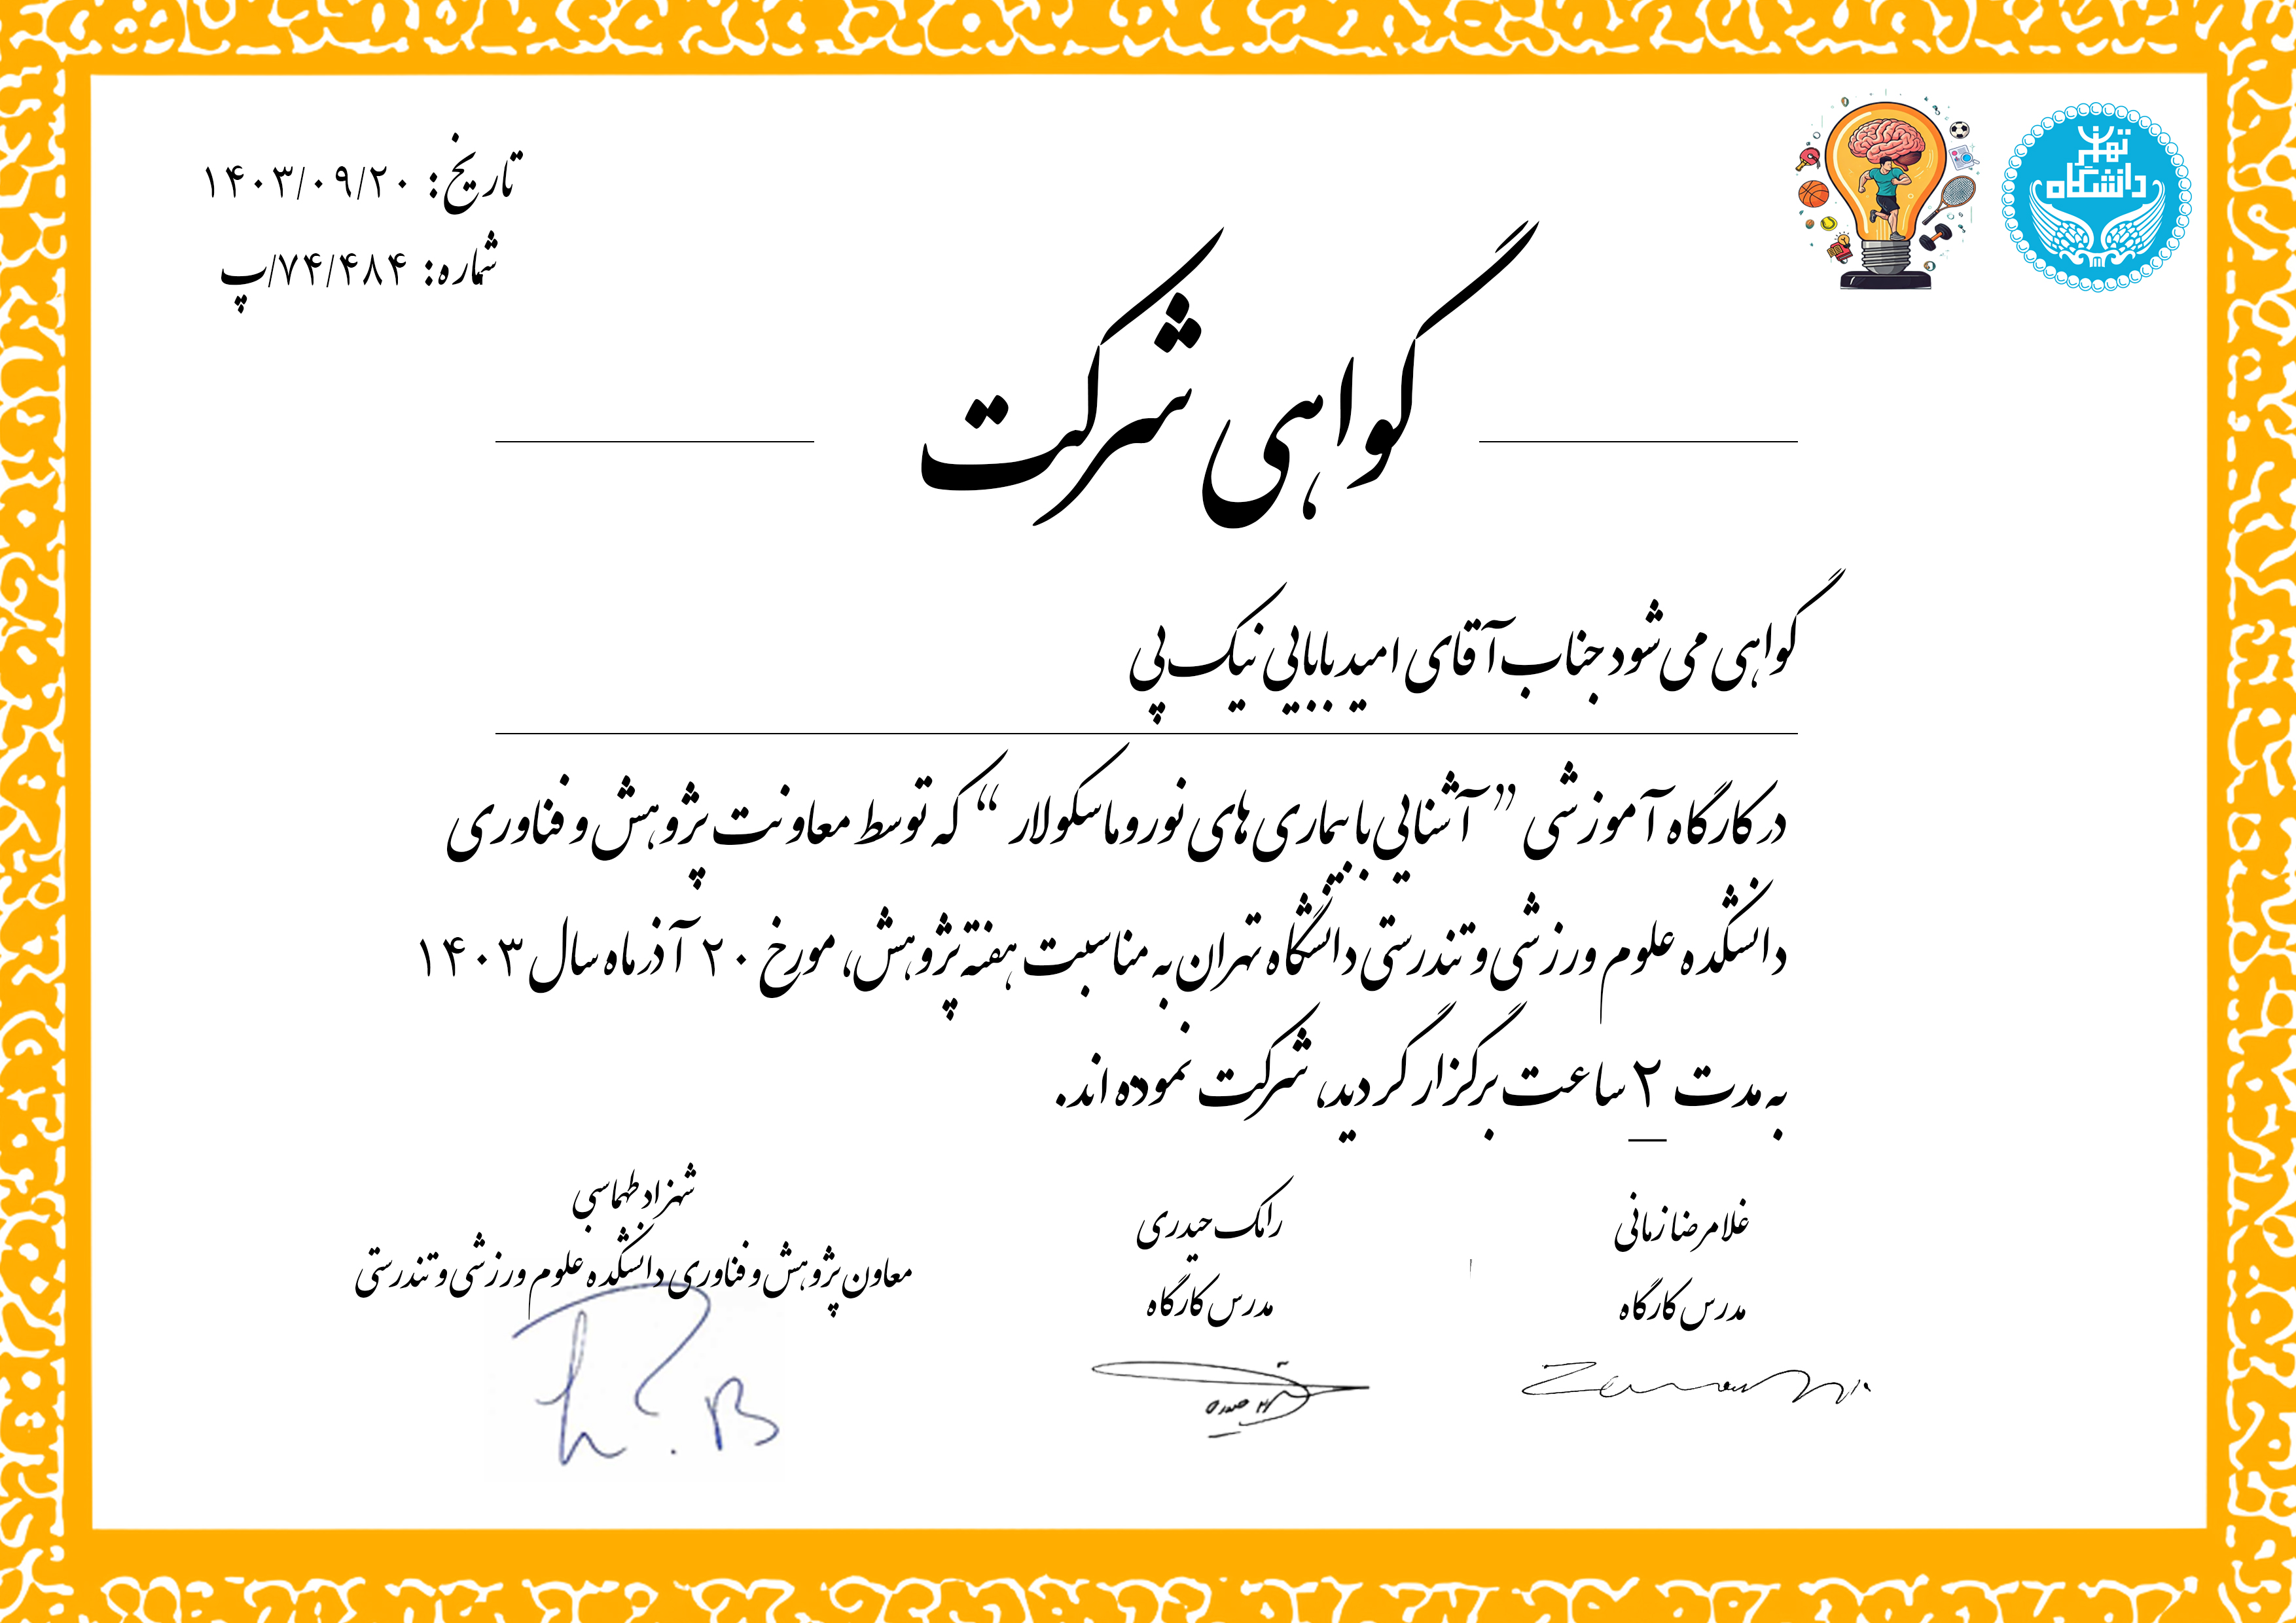 دانشگاه تهران
تاریخ: ۱۴۰۳/۰۹/۲۰
شماره: ۷۴/۴۸۴/پ
گواهی شرکت
گواهی می شود جناب آقای امید بابایی نیک پی
در کارگاه آموزشی ” آشنایی با بیماری های نوروماسکولار “ که توسط معاونت پژوهش و فناوری
دانشکده علوم ورزشی و تندرستی دانشگاه تهران به مناسبت هفته پژوهش، مورخ ۲۰ آذر ماه سال ۱۴۰۳
به مدت ۲ ساعت برگزار گردید، شرکت نموده اند.
غلامرضا زمانی
مدرس کارگاه
رامک حیدری
مدرس کارگاه
شهزاد طهماسبی
معاون پژوهش و فناوری دانشکده علوم ورزشی و تندرستی